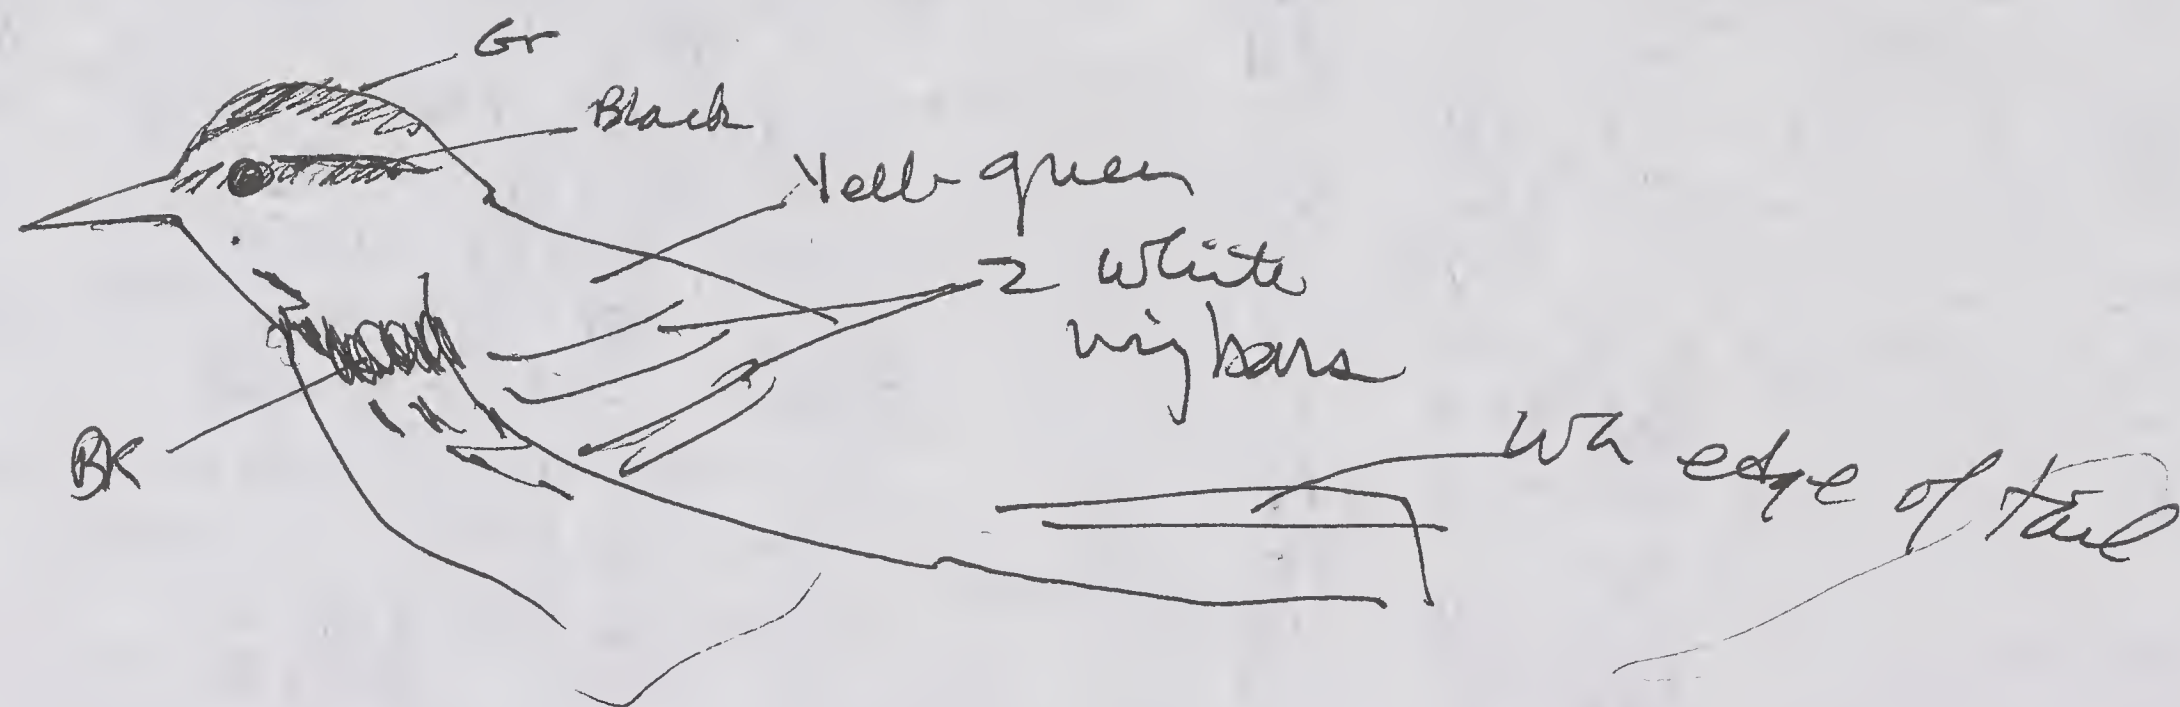 Gr
Black
Yell-green
2 white
wingbars
BK
Wh edge of tail